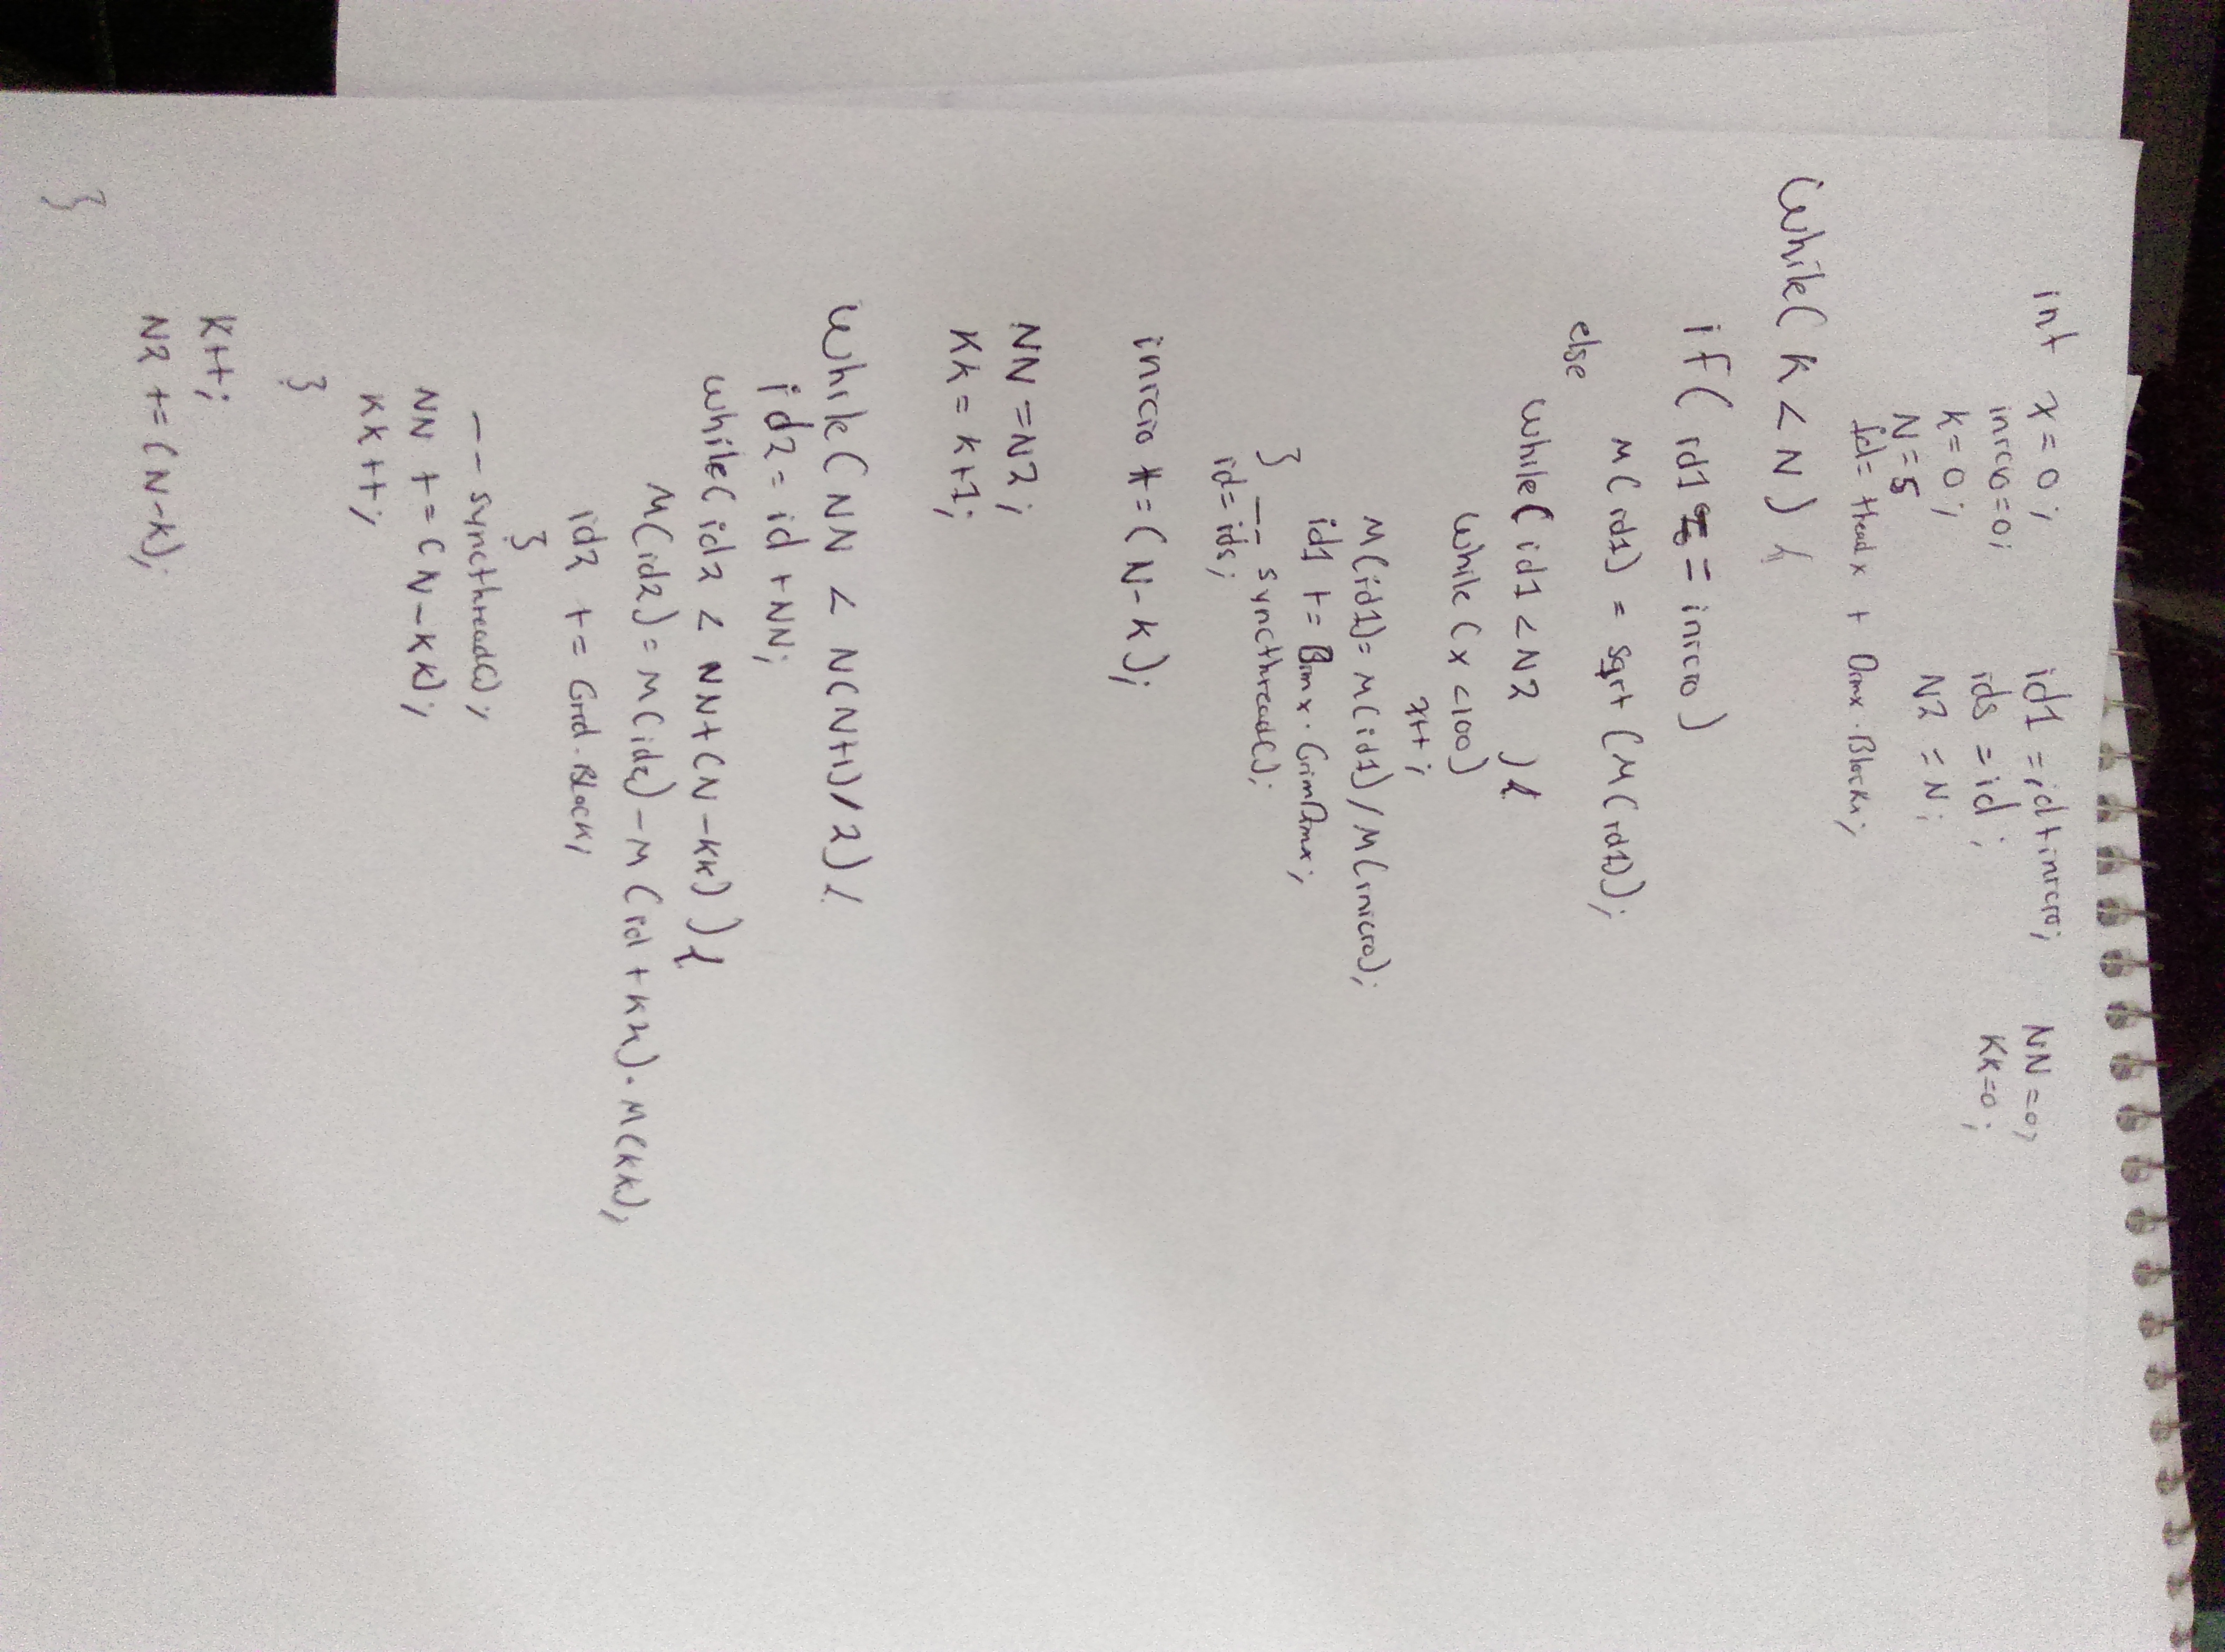 int x=0; id1=id+inicio; NN=0;
inicio=0; ids=id; KK=0;
k=0; N2=N;
N=5
id= thead x + Dimx.Block;
While(k<N){
if(id1==inicio)
M(id1) = sqrt(M(id1));
else
while(id1<N2){
while(x<100)
x++;
M(id1)=M(id1)/M(inicio);
id1 +=
}
__syncthread();
id=ids;
inicio +=(N-k);
NN=N2;
KK=k+1;
While(NN < N(N+1)/2){
id2=id+NN;
while(id2 < NN+(N-KK)){
M(id2)=M(id2)-M(id+KK).M(KK);
id2 += Grid.Block;
}
__syncthread();
NN +=(N-KK);
KK++;
}
K++;
N2 +=(N-K);
}